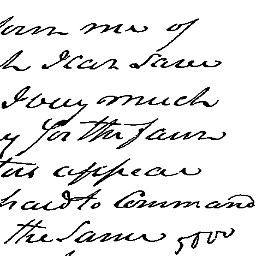 form me of
h I can Save
I buy much
y for the Farm
tus appear
hard to Command
the Same 5000